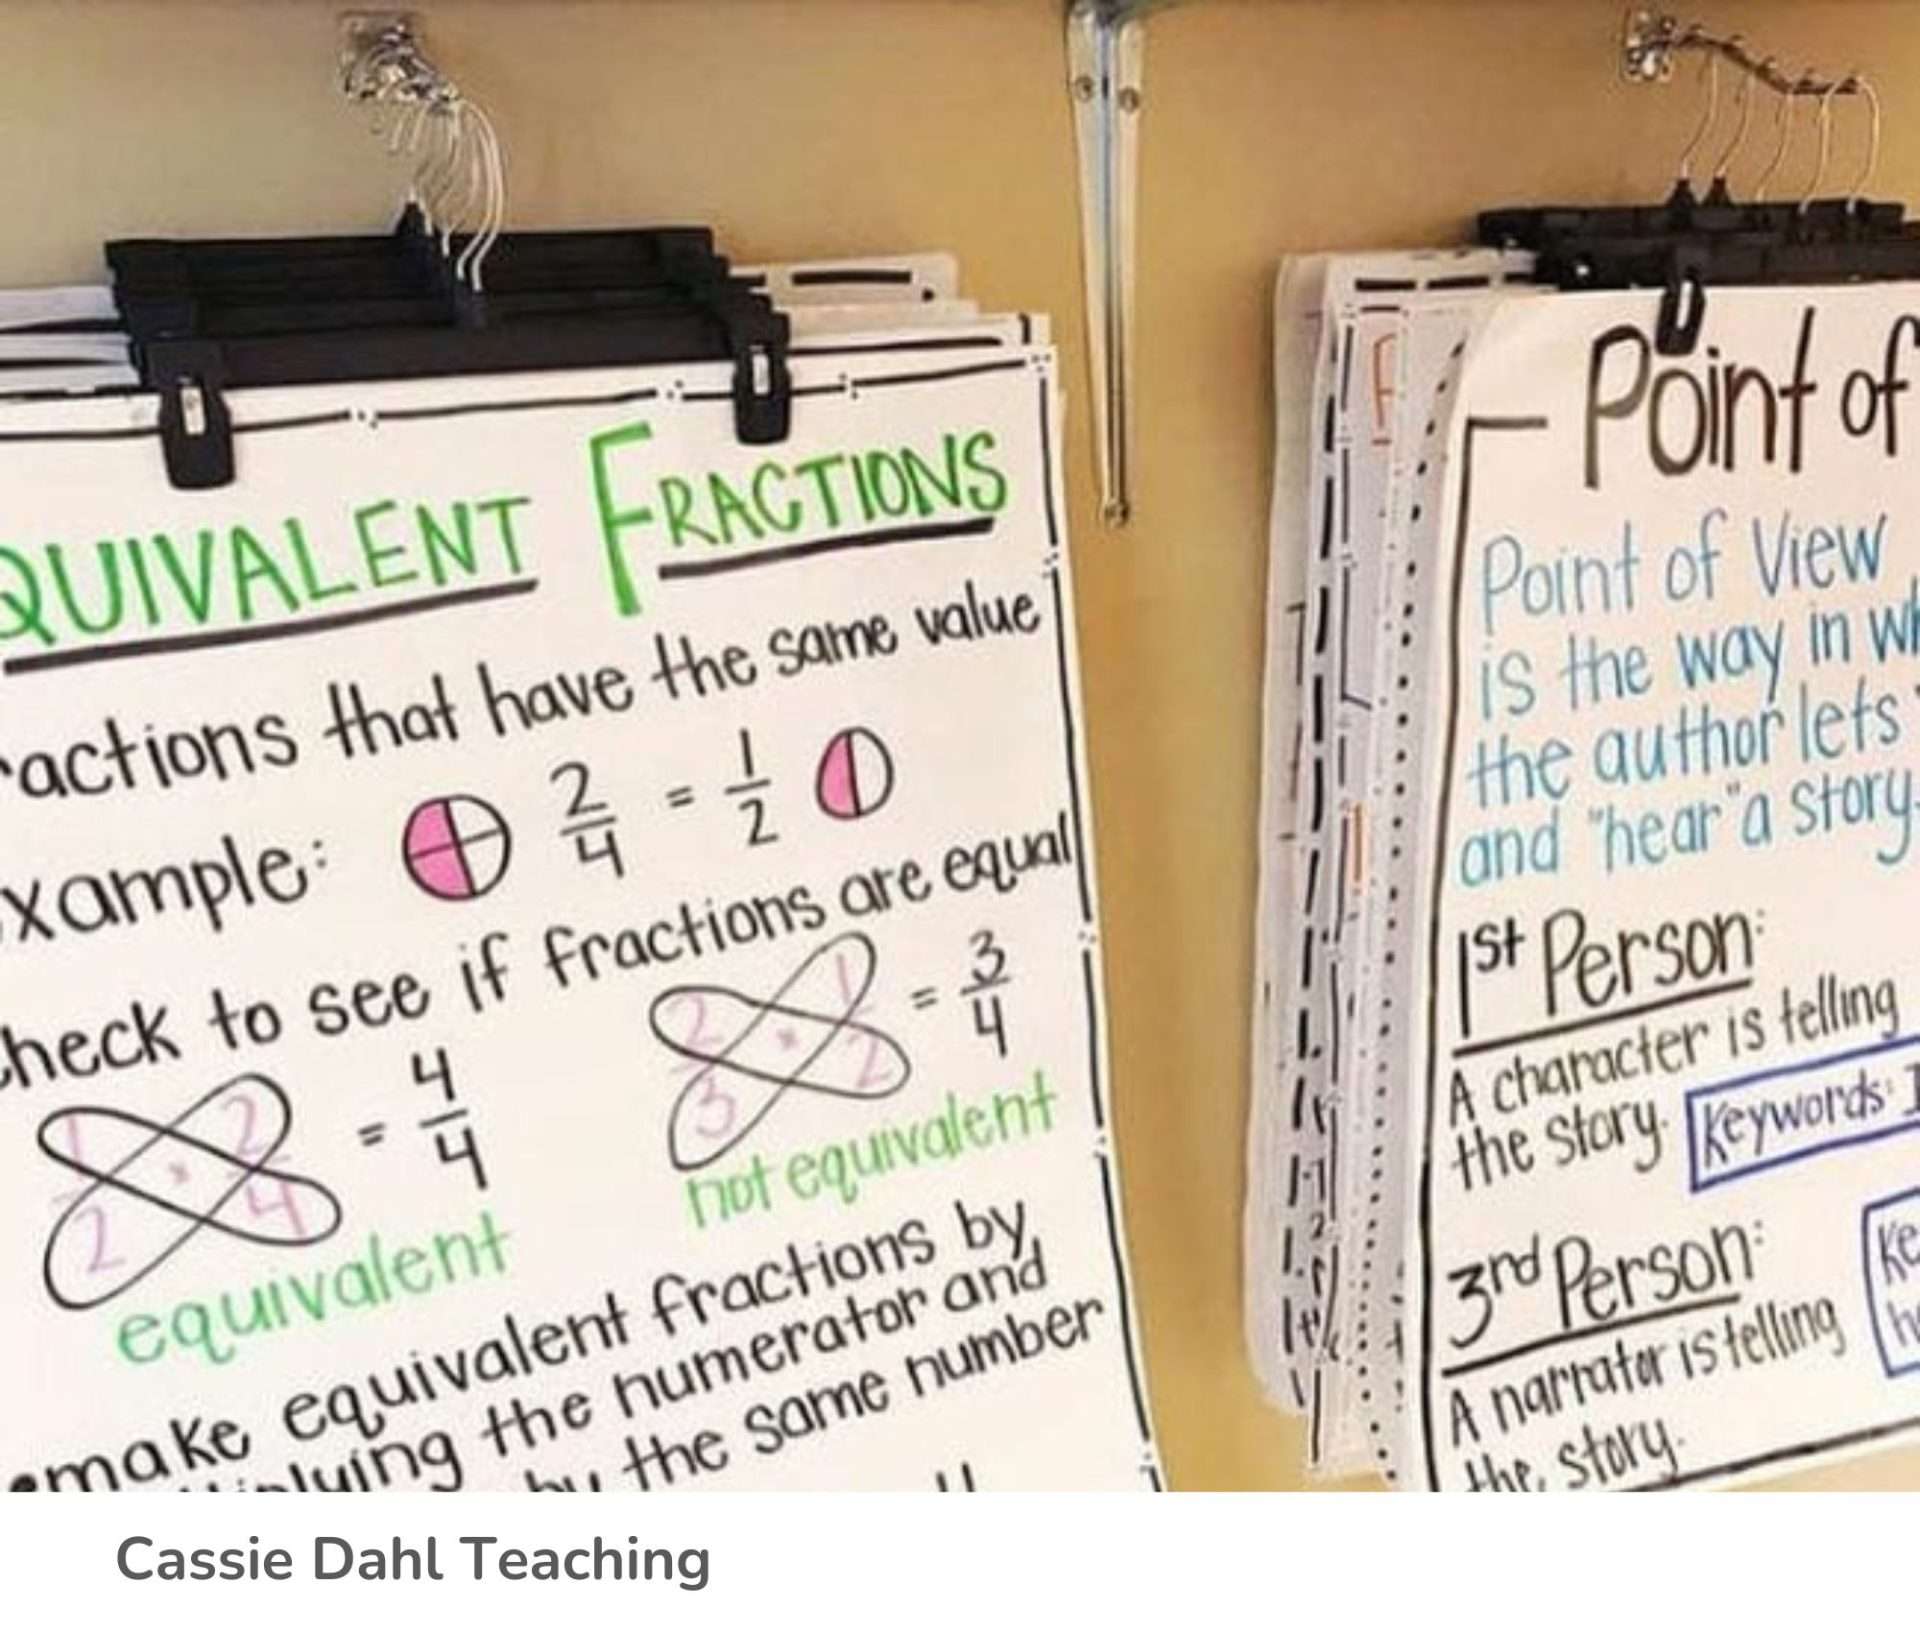 QUIVALENT FRACTIONS
actions that have the same value
xample: 2/4 = 1/2
heck to see if fractions are equal
1/2 × 2/4 = 4/4
equivalent
2/3 × 1/2 = 3/4
not equivalent
make equivalent fractions by
the numerator and
the same number
Point of
Point of View
is the way in wh
the author lets
and "hear" a story.
1st Person:
A character is telling
the story.
Keywords: I
3rd Person:
A narrator is telling
the story.
Ke
he
Cassie Dahl Teaching